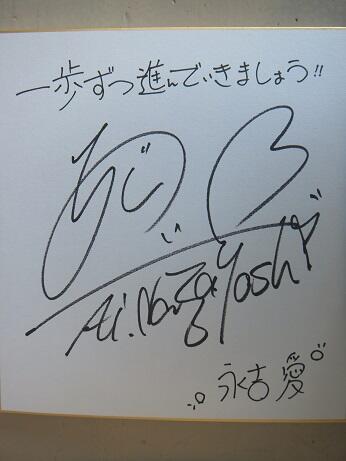 一歩ずつ進んでいきましょう!!
Ai.Nagayoshi
永吉愛